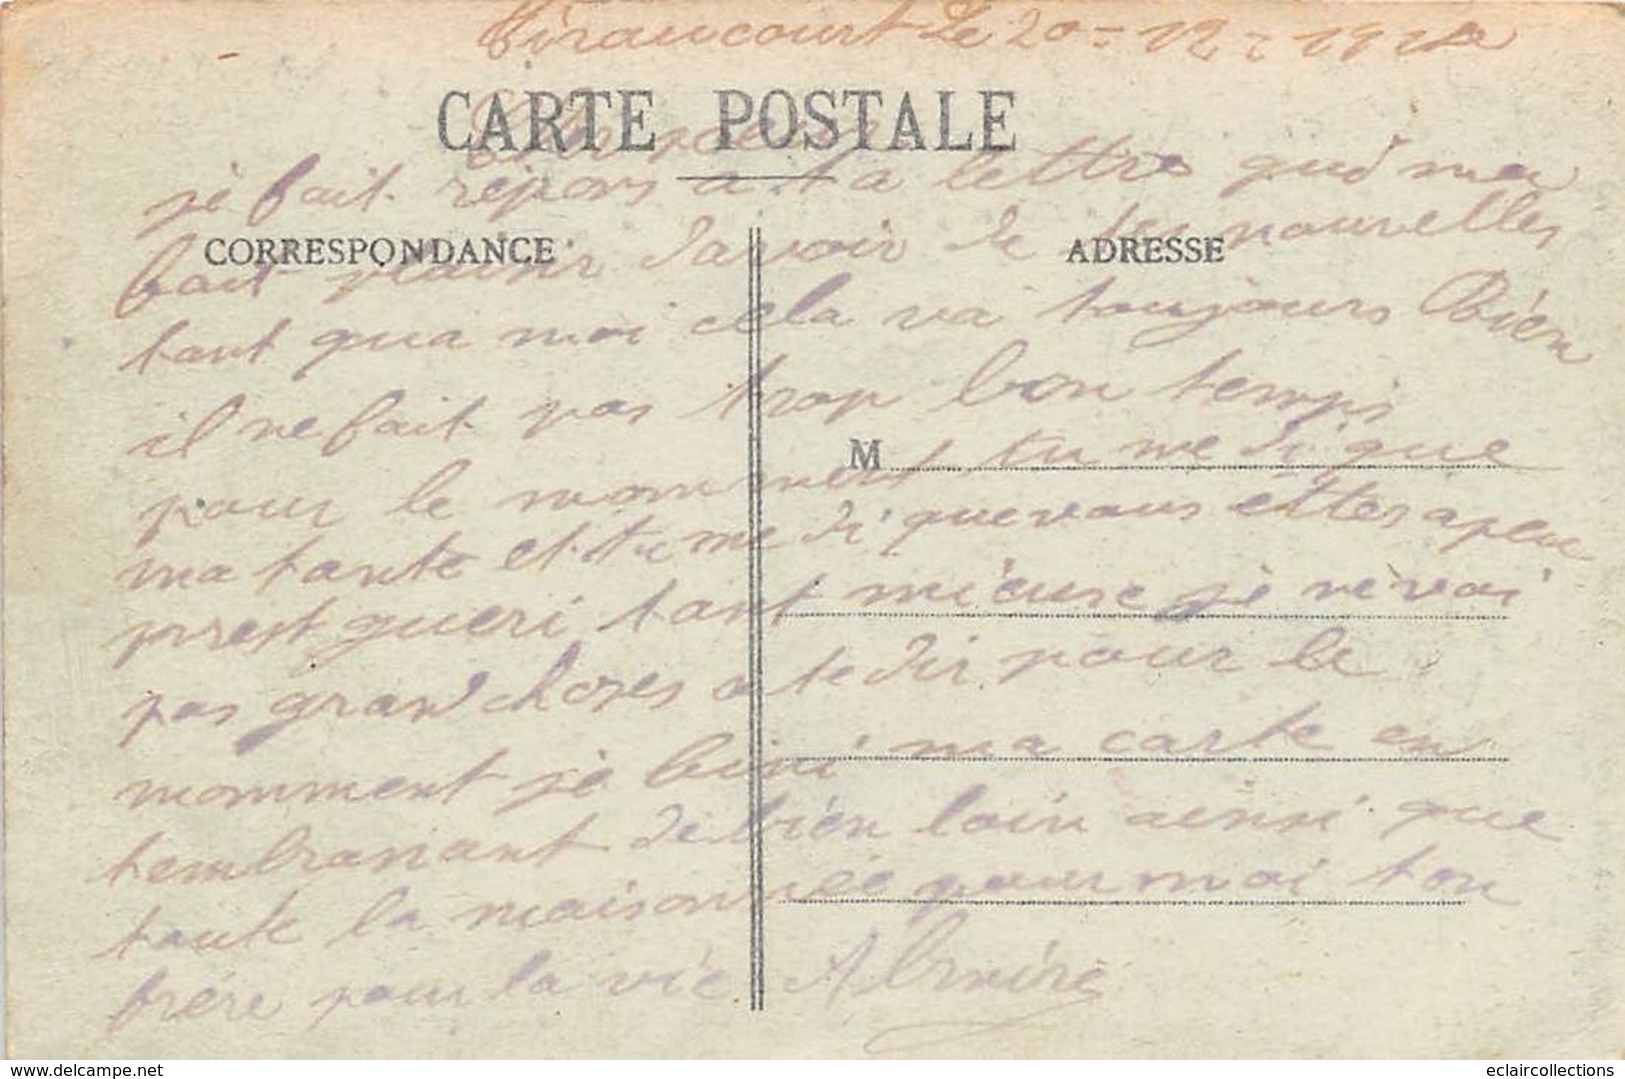 Tiraucourt Le 20 = 12 = 191
CARTE POSTALE
je fait repons a ta lettre qui ma
CORRESPONDANCE
ADRESSE
fait plaisir davoir de tes nouvelles
tant qua moi cela va toujours Bien
il ne fait pas trop bon temps
M
pour le momment tu me di que
ma tante et tu me di que vous ettes a peu
prest gueri tant mieuse je ne voi
pas grand choses a te dir pour le
momment je fini ma carte en
tembrassant de bien loin ainsi que
toute la maisonnée pour moi ton
frére pour la vie
reçue de : ypres.com
eclaircollections